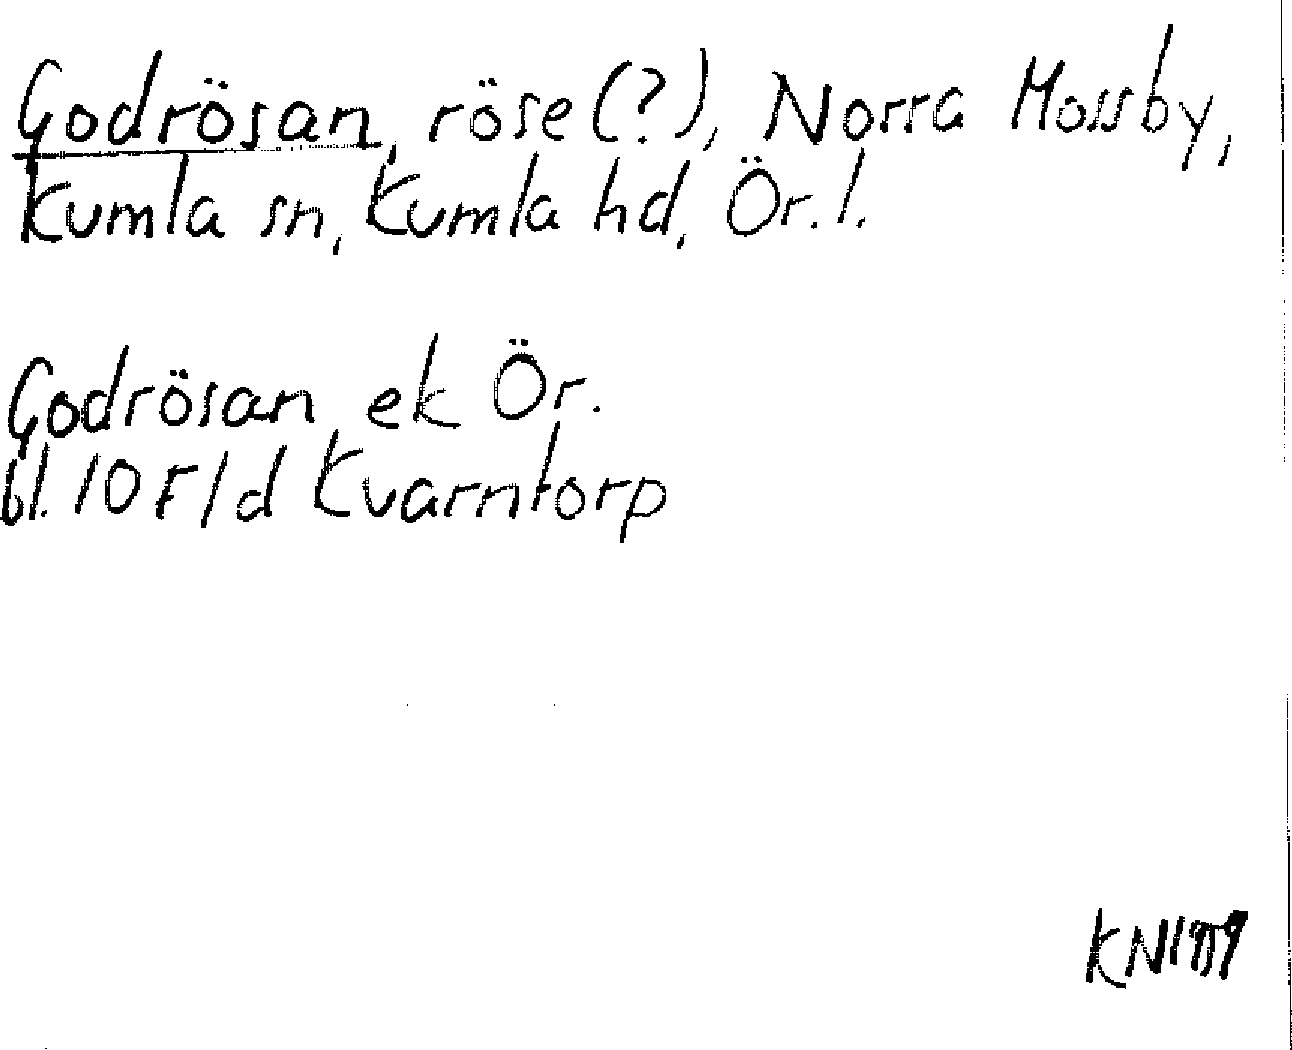 Godrösan, röse (?), Norra Mossby,
Kumla sn, Kumla hd, Ör. l.
Godrösan ek Ör.
bl. 10 F/d Kvarntorp